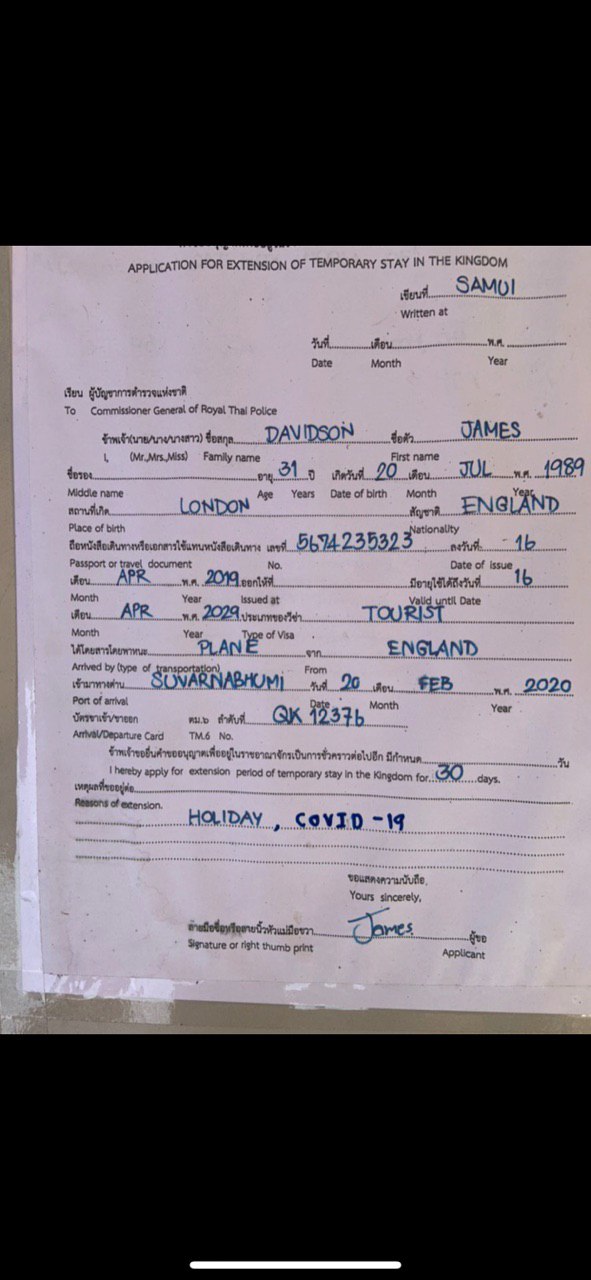 APPLICATION FOR EXTENSION OF TEMPORARY STAY IN THE KINGDOM
เขียนที่ SAMUI
Written at
วันที่ เดือน พ.ศ.
Date Month Year
เรียน ผู้บัญชาการตำรวจแห่งชาติ
To Commissioner General of Royal Thai Police
ข้าพเจ้า(นาย/นาง/นางสาว) ชื่อสกุล DAVIDSON ชื่อตัว JAMES
I, (Mr.,Mrs.,Miss) Family name First name
ชื่อรอง อายุ 31 ปี เกิดวันที่ 20 เดือน JUL พ.ศ. 1989
Middle name Age Years Date of birth Month Year
สถานที่เกิด LONDON สัญชาติ ENGLAND
Place of birth Nationality
ถือหนังสือเดินทางหรือเอกสารใช้แทนหนังสือเดินทาง เลขที่ 5674235323 ลงวันที่ 16
Passport or travel document No. Date of issue
เดือน APR พ.ศ. 2019 ออกให้ที่ มีอายุใช้ได้ถึงวันที่ 16
Month Year Issued at Valid until Date
เดือน APR พ.ศ. 2029 ประเภทของวีซ่า TOURIST
Month Year Type of Visa
ได้โดยสารโดยพาหนะ PLANE จาก ENGLAND
Arrived by (type of transportation) From
เข้ามาทางด่าน SUVARNABHUMI วันที่ 20 เดือน FEB พ.ศ. 2020
Port of arrival Date Month Year
บัตรขาเข้า/ขาออก ตม.๖ ลำดับที่ QK 12376
Arrival/Departure Card TM.6 No.
ข้าพเจ้าขอยื่นคำขออนุญาตเพื่ออยู่ในราชอาณาจักรเป็นการชั่วคราวต่อไปอีก มีกำหนด วัน
I hereby apply for extension period of temporary stay in the Kingdom for 30 days.
เหตุผลที่ขออยู่ต่อ
Reasons of extension.
HOLIDAY, COVID-19
ขอแสดงความนับถือ
Yours sincerely,
ลายมือชื่อหรือลายนิ้วหัวแม่มือขวา James ผู้ขอ
Signature or right thumb print Applicant